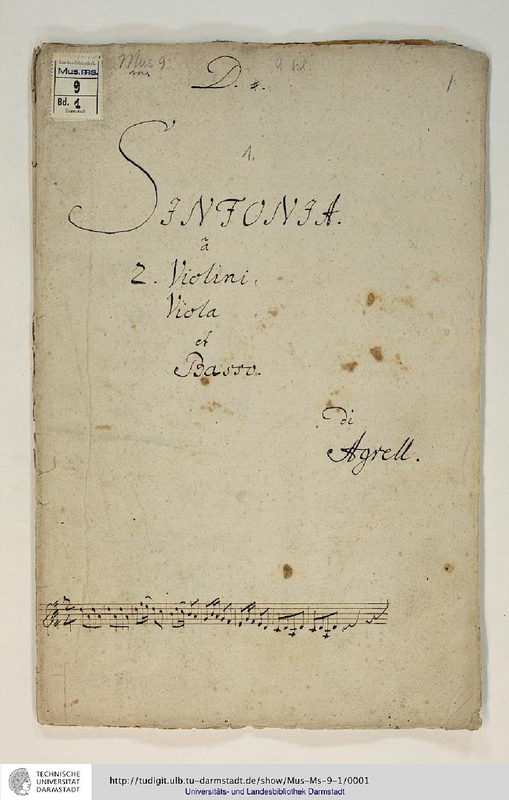 Landesbibliothek
Mus.ms.
9
Bd. 1
Darmstadt
Mus 9
ms
D. #.
9 Bl.
1
1.
SINFONIA.
à
2. Violini,
Viola
et
Basso.
di
Agrell.
TECHNISCHE
UNIVERSITÄT
DARMSTADT
http://tudigit.ulb.tu-darmstadt.de/show/Mus-Ms-9-1/0001
Universitäts- und Landesbibliothek Darmstadt